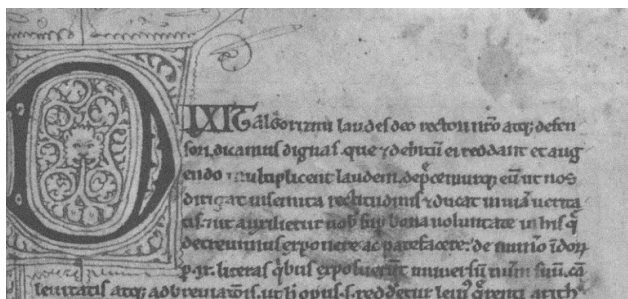 DIXIT algorizmi laudes deo rectori nr̄o atq; defen
sori, dicamus dignas. que ⁊ debitū ei reddant et aug
endo multiplicent laudem. dep̄cemurq; eū ut nos
dirigat in semita rectitudinis ⁊ ducat in uiā uerita
tis. ⁊ ut auxilietur nob̄ sup̄ bona uoluntate in his q̄
decreuimus exponere ac patefacere: de num̄o īdoꝝ
p̲ .ix. literas q̇bus exposuerūt uniuersū num̄ suū. cā
leuitatis atq; adbreuiatōis. ut h̄ opus .s. redderetur leui᷒ q̄renti arith